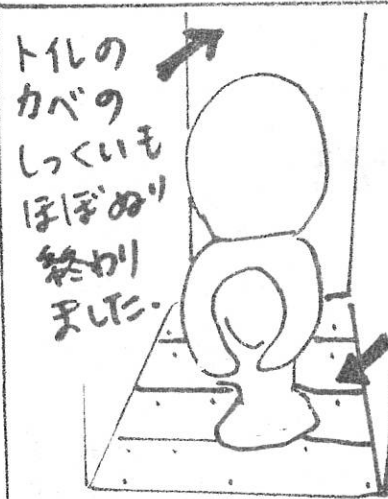 トイレの
カベの
しっくいも
ほぼぬり
終わり
ました.